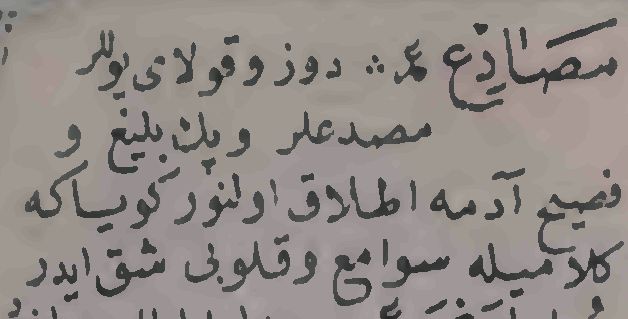 مصادع عم ∴ دوز و قولای یوللر
مصدعلر و پك بلیغ و
فصیح آدمه اطلاق اولنور كویا كه
كلامیله سوامع و قلوبی شق ایدر